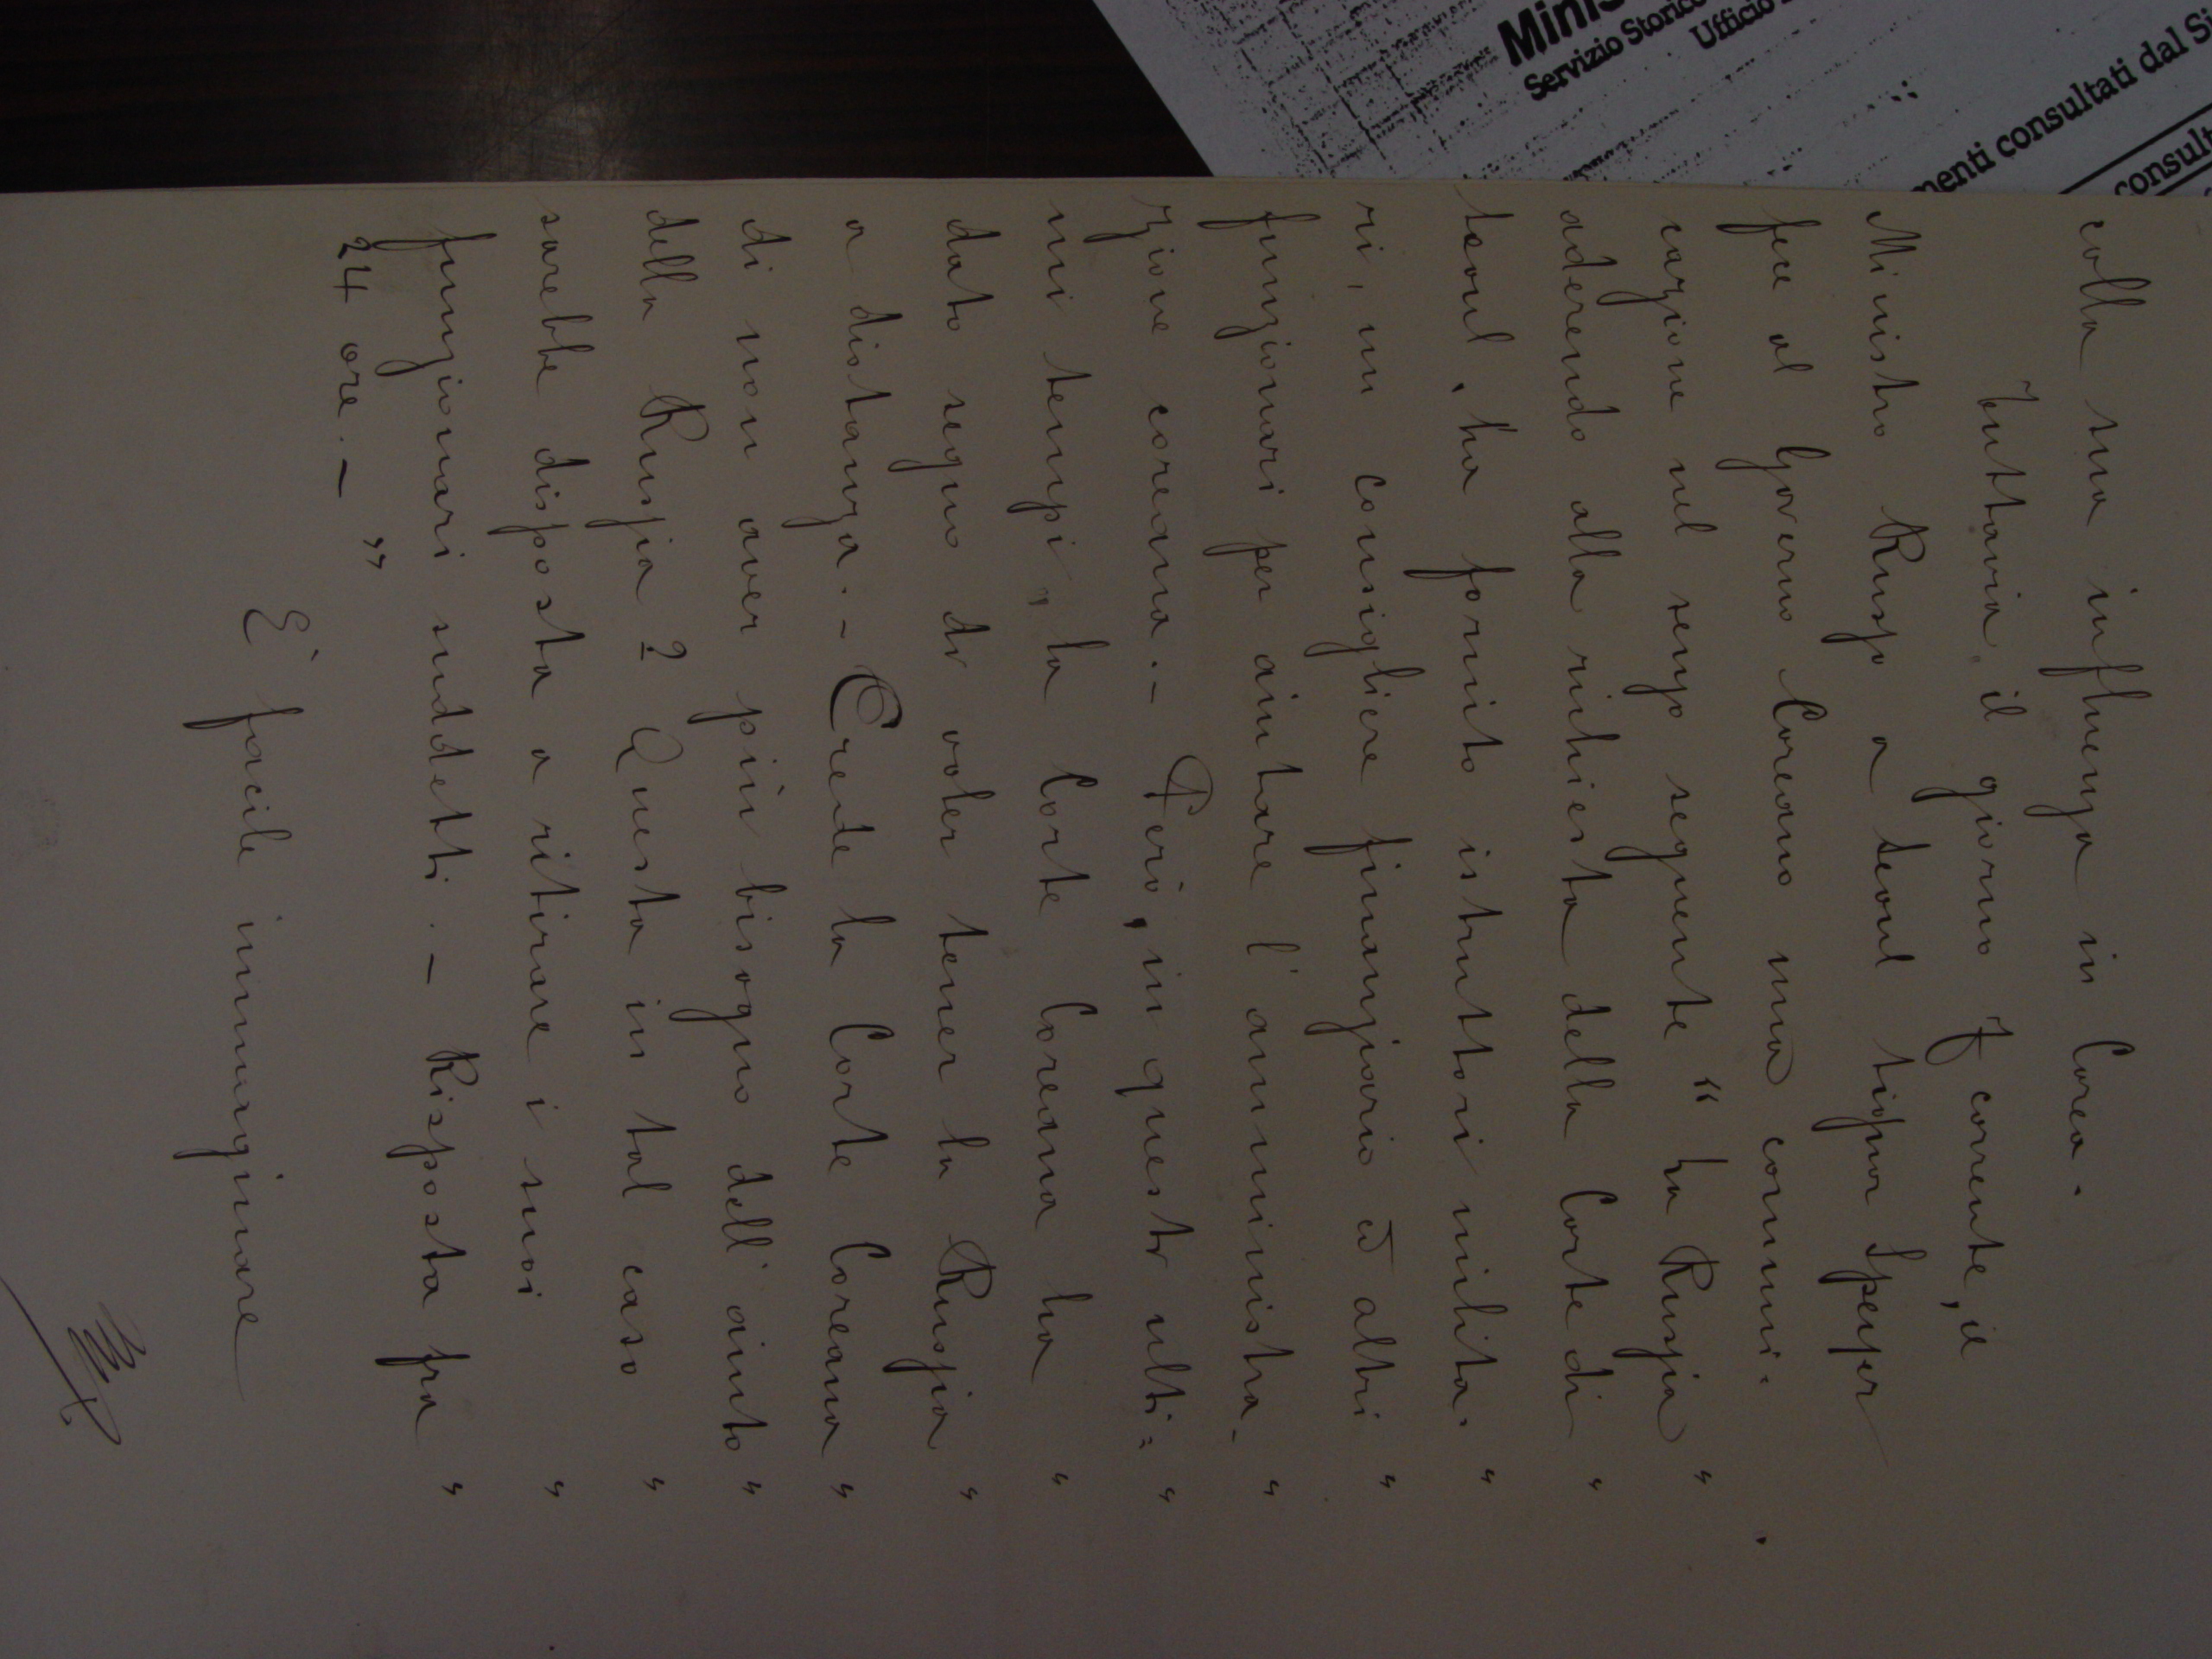 colla sua influenza in Corea.
Tuttavia il giorno 7 corrente, il
Ministro Russo a Seoul signor Speyer
fece al Governo Coreano una comuni-
cazione nel senso seguente “ La Russia „
aderendo alla richiesta della Corte di „
Seoul, ha fornito istruttori milita- „
ri, un consigliere finanziario ed altri „
funzionari per aiutare l'amministra- „
zione coreana. - Però, in questi ulti= „
mi tempi, la Corte Coreana ha „
dato segno di voler tener la Russia „
a distanza. - Crede la Corte Coreana „
di non aver più bisogno dell'aiuto „
della Russia ? Questa in tal caso „
sarebbe disposta a ritirare i suoi „
funzionari suddetti. - Risposta fra „
24 ore. - „
E' facile immaginare
Minis
Servizio Storico
Ufficio
menti consultati dal Si
consult